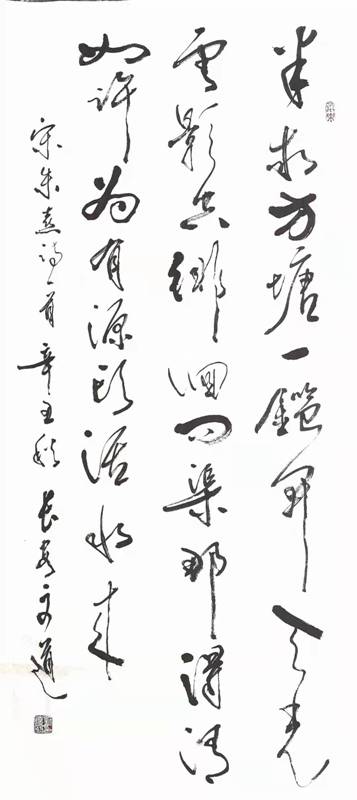 半畝方塘一鑑開天光
雲影共徘徊问渠那得清
如许为有源头活水来
宋朱熹诗一首辛丑